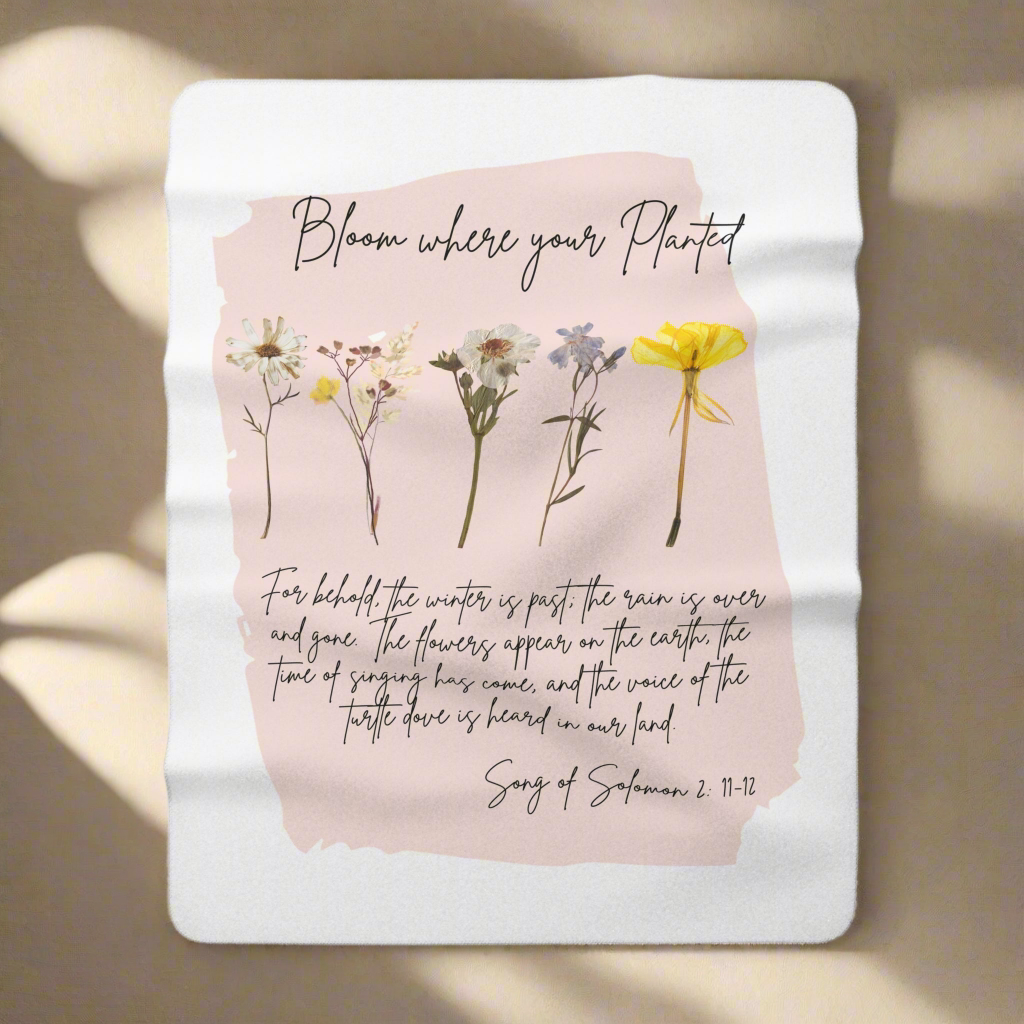 Bloom where your Planted
For behold, the winter is past; the rain is over
and gone. The flowers appear on the earth, the
time of singing has come, and the voice of the
turtle dove is heard in our land.
Song of Solomon 2: 11-12